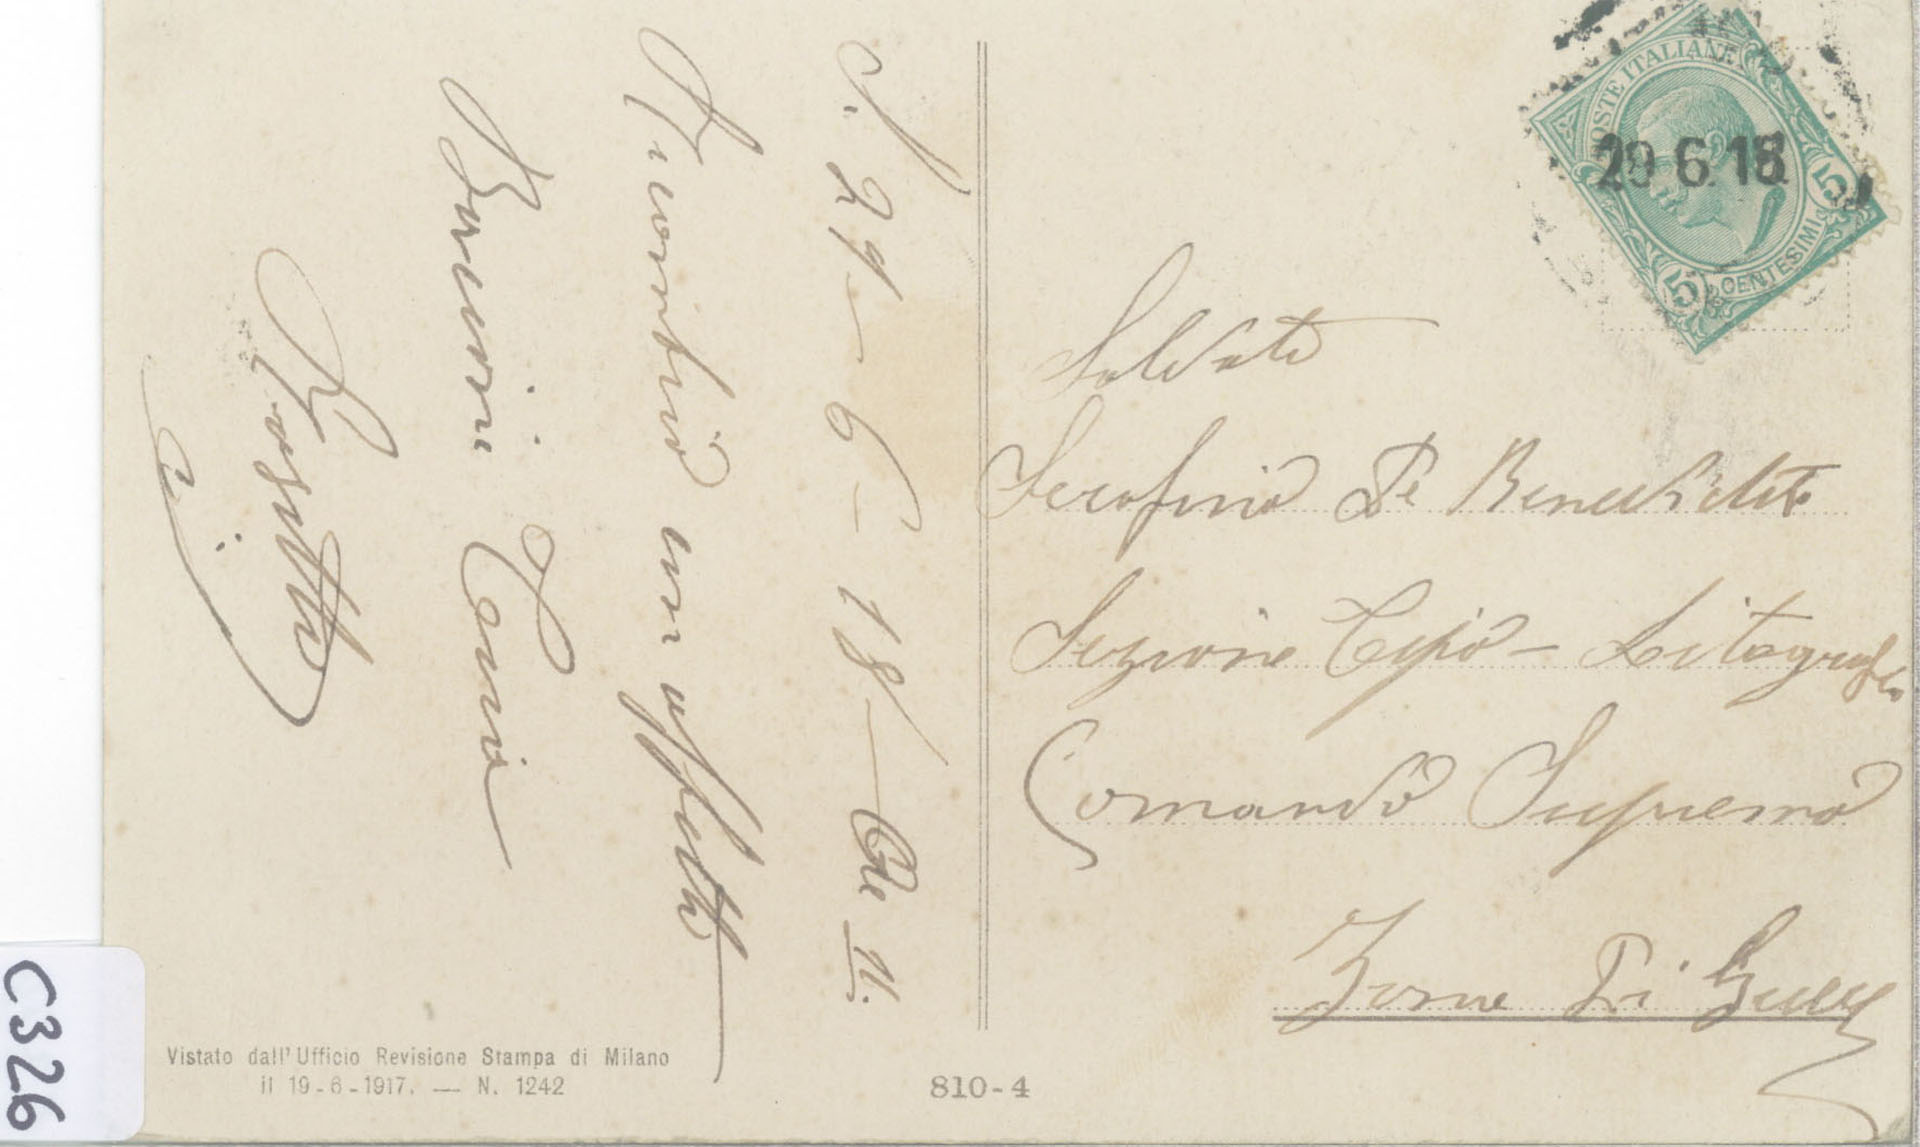 S. 29-6-18- Ore 11.
Ricambio un affett
Bacioni Cari
Rosetta
POSTE ITALIANE
29 6.18
5 CENTESIMI 5
Soldato
Serafino De Benedetti
Sezione Tipo-Litografi
Comando Supremo
Zona Di Guerra
Vistato dall'Ufficio Revisione Stampa di Milano
il 19-6-1917. — N. 1242
810-4
C326